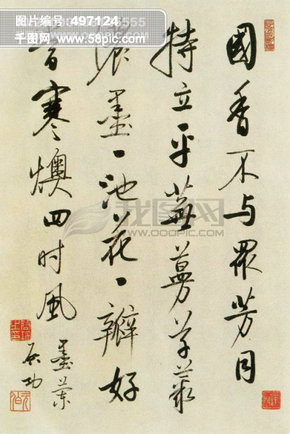 图片编号:497124
千图网 www.58pic.com 千图网 www.58pic.com
國香不与眾芳同
特立平蕪蔓草叢
墨一池花一瓣好
寒燠四时风
墨兰
启功